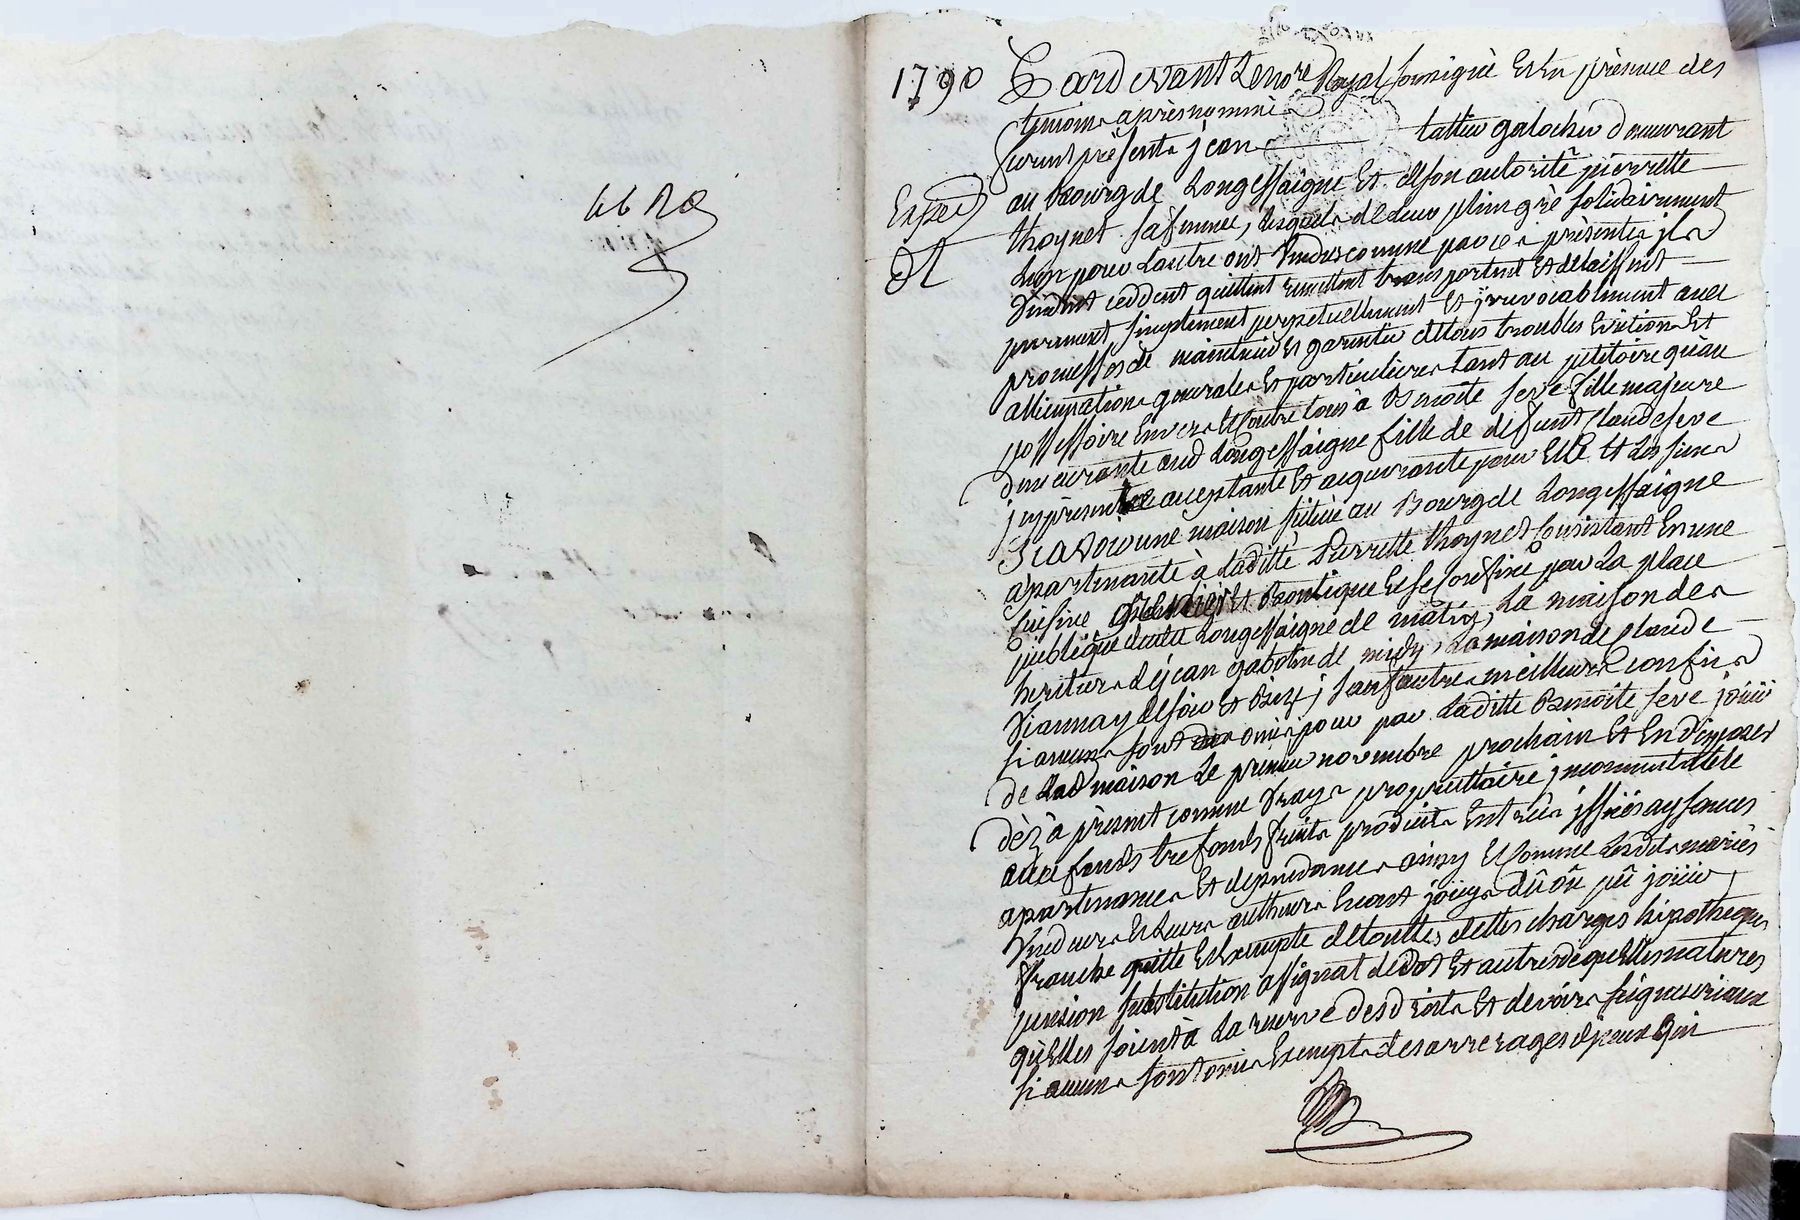 1790
Expedi
dt
Pardevant Le no.re Royal soussigné Et En présence des
témoins après nommé
furent présents jean lattier galochier demeurant
au Bourg de Longessaigne Et de son autorité pierrette
thoynet sa femme, lesquels de leur plein gré solidairement
Lun pour Lautre ont Vendus comme par ces présentes ils
Vendent ceddent quittent remettent transportent Et delaissent
purement simplement perpetuellement Et jrrevocablement avec
promesses de maintenir Et garentir de tous troubles Evictions Et
allienations generales Et particulieres tant au petitoire qu'au
possessoire Envers Et Contre tous à Benoite seve fille majeure
demeurante aud Longessaigne fille de defunt Claude seve
jcy présente acceptante Et acquerante pour Elle Et Les siens
Scavoir une maison située au Bourg de Longessaigne
apartenante à Laditte Pierrette thoynet Consistant En une
Cuisine Et Boutique Et se Confine par La place
publique Longessaigne de matin, La maison des
heritiers de jean de midy, La maison de Claude
de soir Et Bize, sauf autres meilleurs confins
si aucuns sont pour par Laditte Benoite seve jouir
de Lad maison Le premier novembre prochain Et En disposer
dèz à présent comme Vraye propriettaire jncommutable
avec fonds trefonds fruits produits Entrées jssües aysances
apartenances Et dependances ainsy Et Comme Lesdits mariés
Vendeurs Et Leurs autheurs En ont jouys dû où pû jouir
franche quitte Et Exempte de touttes dettes charges hipotheques
pension substitution assignat de dot Et autres de quelles natures
qu'Elles soient à La reserve des droits Et devoirs seigneuriaux
si aucuns sont Exempts des arrerages d'jceux qui